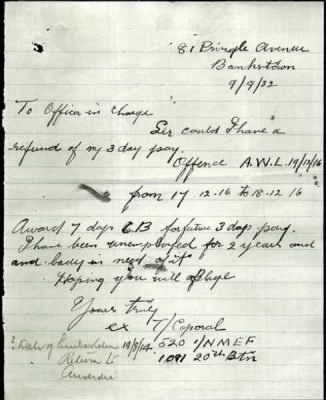 81 Pringle Avenue
Bankstown
9/9/32
To Officer in Charge
Sir could I have a
refund of my 3 day pay.
Offence A.W.L. 19/12/16
from 17.12.16 to 18.12.16
Award 7 days C.B forfuture 3 days pay.
I have been unemployed for 2 years and
and badly in need of it
Hoping you will oblige
Yours truly
ex T/Caporal
? Date of Embarkation 19/8/14 520 1/NMEF
Return to 1091 20th Btn
Australia